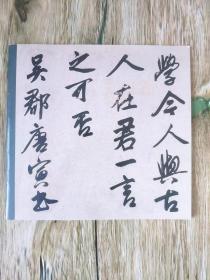 學今人與古
人在君一言
之可否
吳郡唐寅書